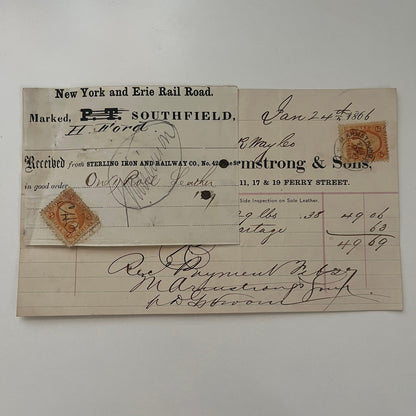 New York and Erie Rail Road.
Marked, P. T. SOUTHFIELD,
H Ford.
Received from STERLING IRON AND RAILWAY CO., No. 42
in good order,
One Roll Leather
Jan 24th 1866
Way Co
mstrong & Sons,
11, 17 & 19 FERRY STREET.
Side Inspection on Sole Leather.
29 lbs .38 49 06
rtage 63
49 69
Rec'd Payment
M Armstrong & Sons